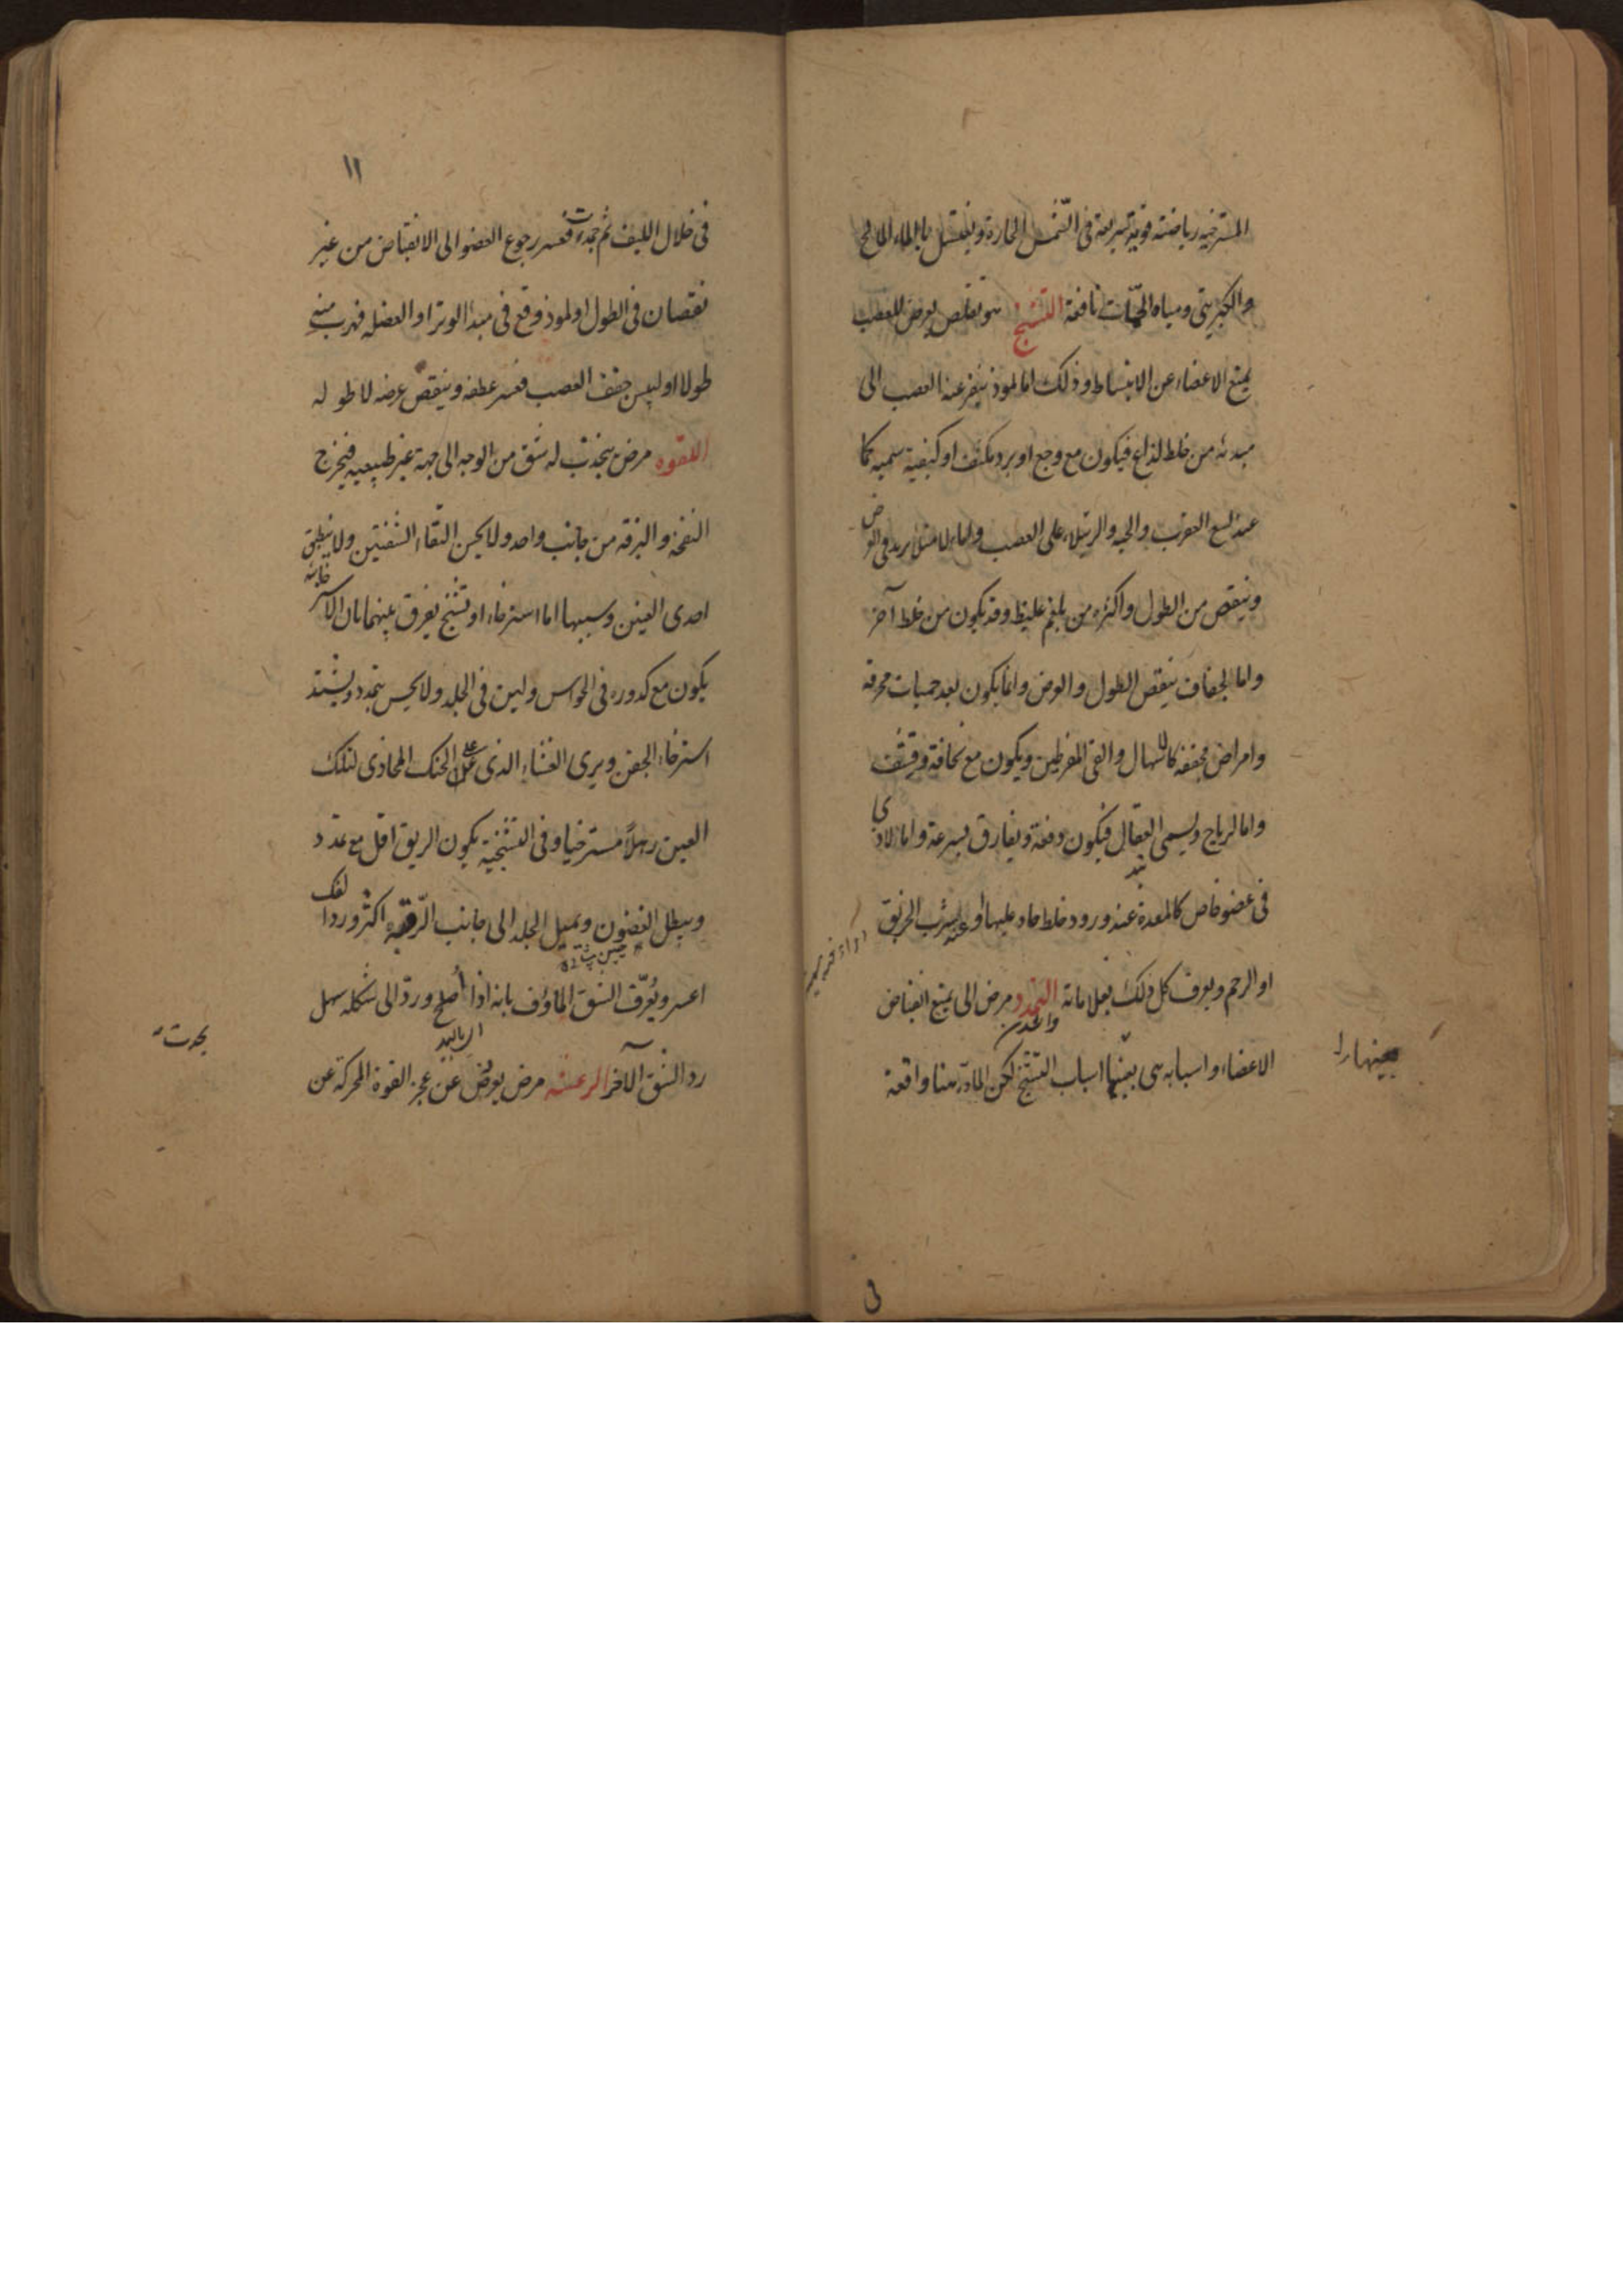 المسترخيه رياضته قوية سريعة فى الشمس الحارة ويغتسل بالماء المالح
والكبريتى ومياه الحمّات نافعة التشنج هو تقلص يعرض للعصب
يمنع الاعضاء عن الانبساط وذلك اما لموذ ينفر عنه العصب الى
مبدئه من خلط لذاع فيكون مع وجع او برد مكثف او كيفية سميه كما
عند لسع العقرب والحيه والرتيلاء على العصب واما لامتلاء يزيد فى العرض
وينقص من الطول واكثره من بلغم غليظ وقد يكون من خلط آخر
واما لجفاف ينقص الطول والعرض وانما يكون بعد حميات محرقه
وامراض مجففه كالاسهال والقى المفرطين ويكون مع نحافة وقشف
واما لرياح ويسمى العقال فيكون دفعة ويفارق بسرعة واما لاذى
فى عضو خاص كالمعدة عند ورود خلط حاد عليها او عند شرب الخربق
او الرحم ويعرف كل ذلك بعلاماته التمدد مرض الى يمنع انقباض
الاعضاء واسبابه هى بعينها اسباب التشنج لكن المادة هنا واقعة
بعينها
١١
فى خلال الليف ثم جمدت فعسر رجوع العضو الى الانقباض من غير
نقصان فى الطول او لموذ وقع فى مبدأ الوتر او العضله فهرب منه
طولا او ليبس جفف العصب فعسر عطفه وينقص عرضه لا طوله
اللقوه مرض ينجذب له شق من الوجه الى جهة غير طبيعيه فيخرج
النفخة والبزقه من جانب واحد ولا يحسن التقاء الشفتين ولا ينطبق
احدى العينين وسببها اما استرخاء او تشنج يفرق بينهما بان الاسترخائيه
يكون مع كدوره فى الحواس ولين فى الجلد ولا يحس بتمدد ويشتد
استرخاء الجفن ويرى الغشاء الذى على الحنك المحاذى لتلك
العين رهلاً مسترخيا وفى التشنجية يكون الريق اقل مع تمدد
ويبطل الغضون ويميل الجلد الى جانب الرقبة اكثر ورد الفك
اعسر ويُعرّف الشق الماؤف بانه اذا أصلح وردّ الى شكله سهل
رد الشق الآخر الرعشه مرض يعرض عن عجز القوة المحركة عن